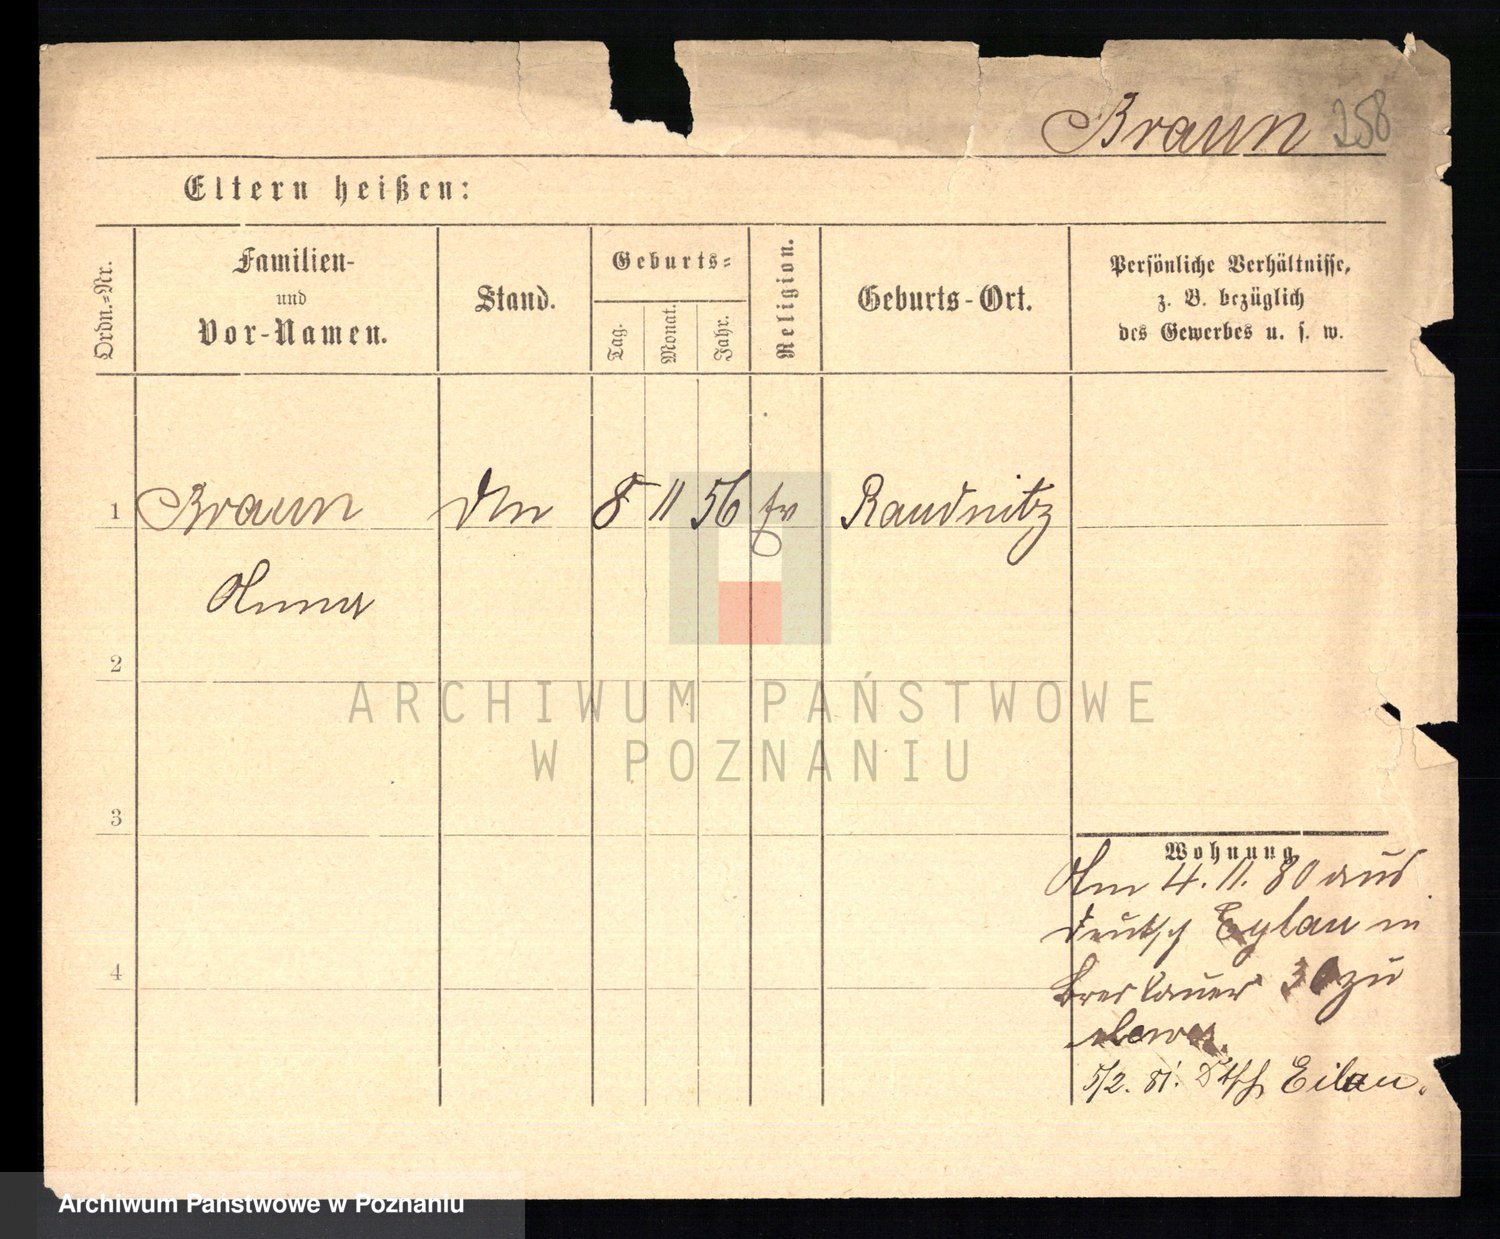 Braun 258
Eltern heißen:
Ordn.=Nr.
Familien-
und
Vor-Namen.
Stand.
Geburts=
Tag.
Monat.
Jahr.
Religion.
Geburts-Ort.
Persönliche Verhältnisse,
z. B. bezüglich
des Gewerbes u. s. w.
1 Braun 8 11 56 Raudnitz
Anna
2
3
4
Wohnung
Am 4. 11. 80 aus
Deutsch Eylau in
Breslauer 30 zu
5/2. 81. Dtsch Eilau.
ARCHIWUM PAŃSTWOWE
W POZNANIU
Archiwum Państwowe w Poznaniu